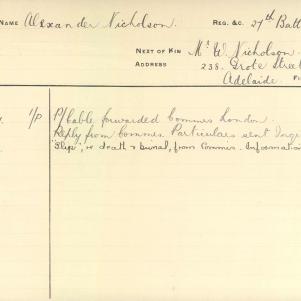 NAME Alexander Nicholson. REG. &C. 27th Batt
NEXT OF KIN Mr W. Nicholson
ADDRESS 238. Grote Street
Adelaide.
1/P P/Cable forwarded Commrs London.
Reply from Commrs. Particulars sent
"Slip", re death & burial, from Commrs. Informatio